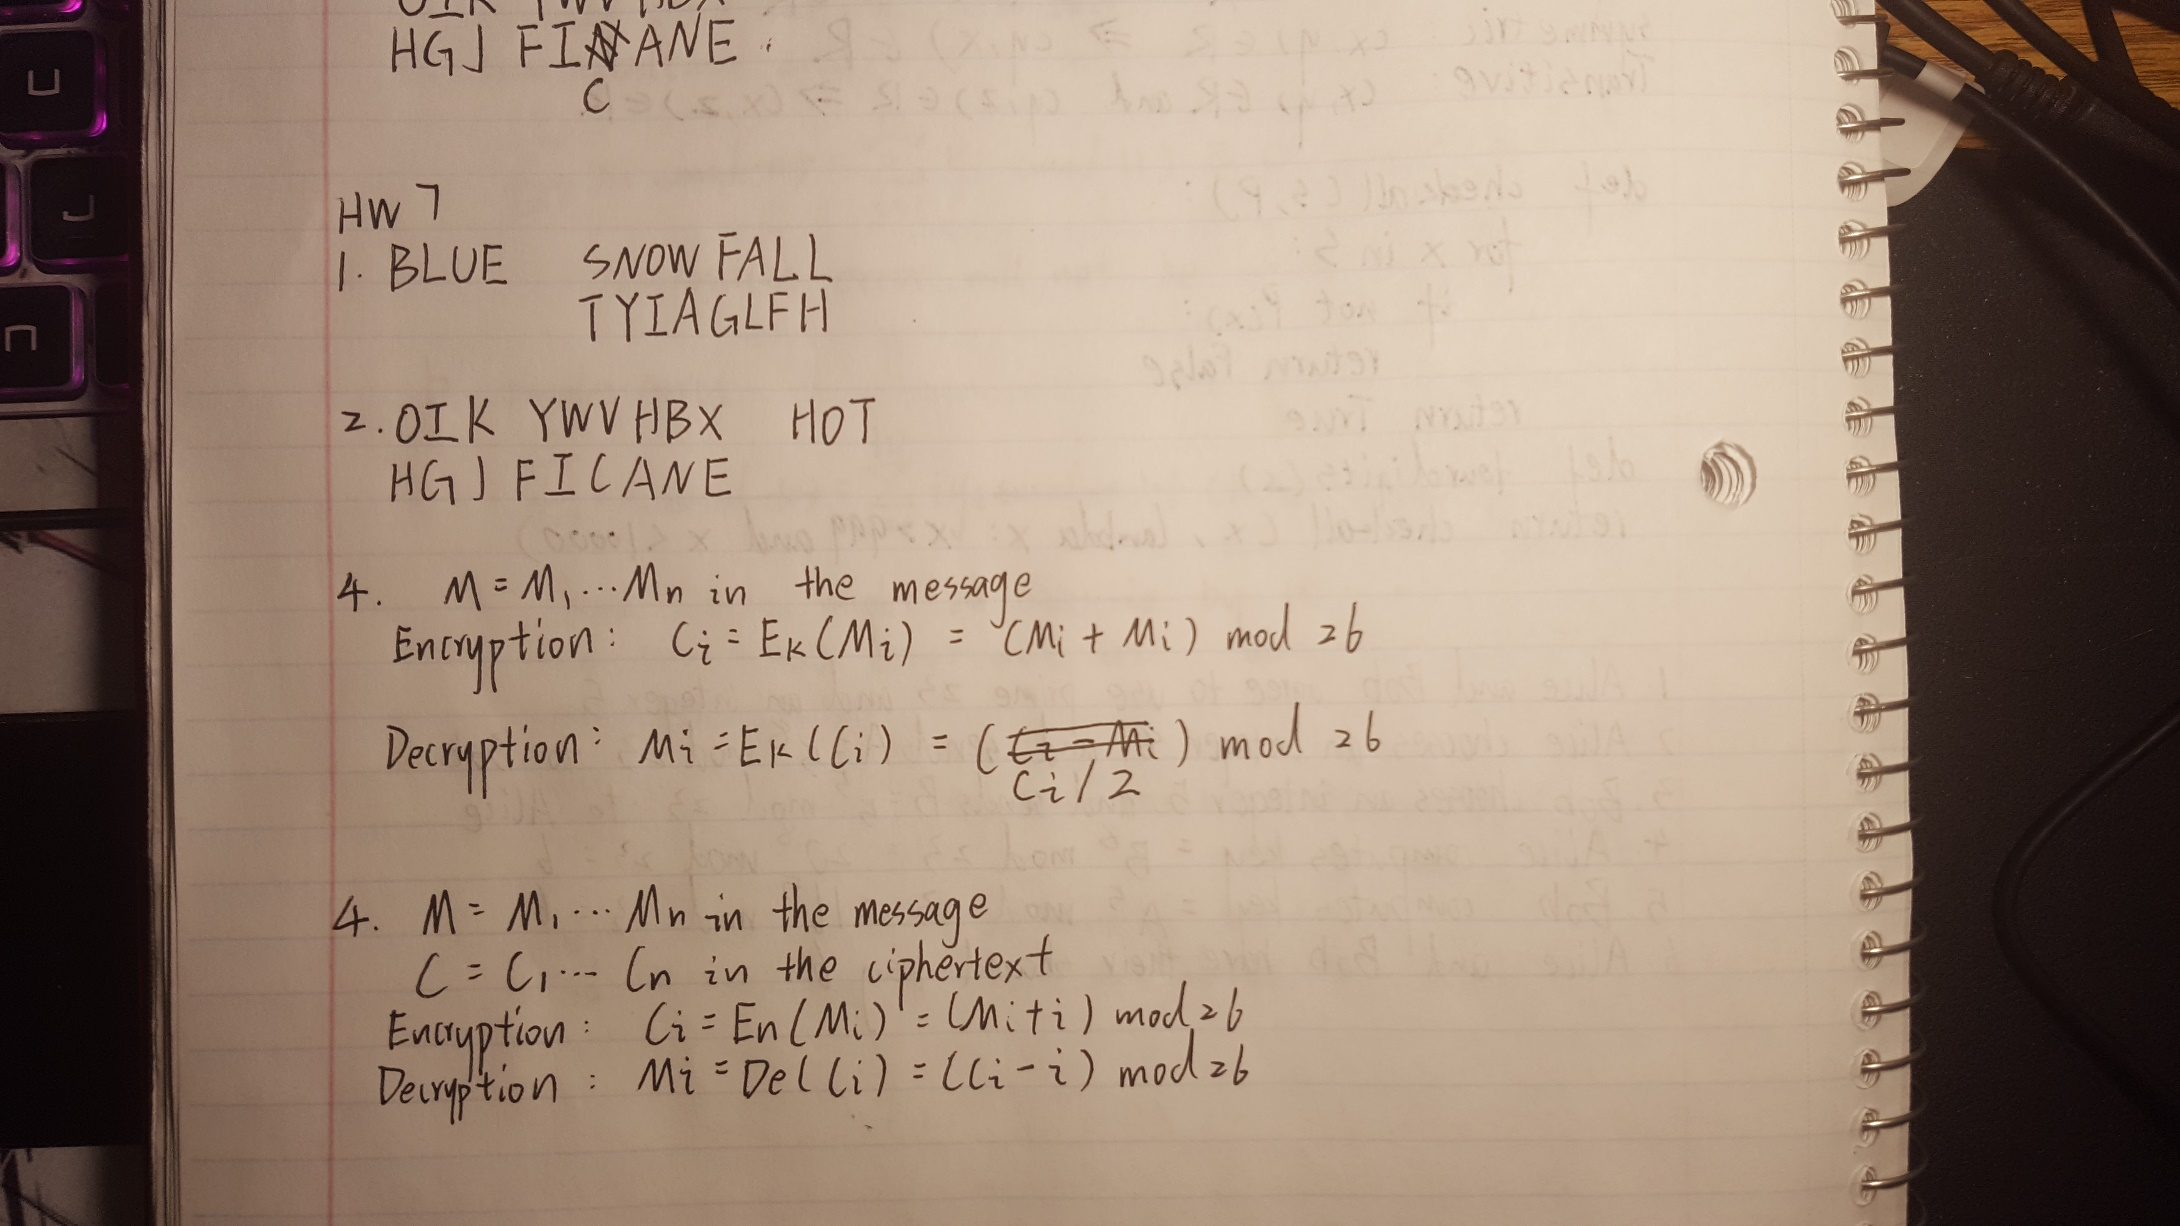 OIK YWVHBX
HGJ FINANE.
C
HW 7
1. BLUE SNOWFALL
TYIAGLFH
2. OIK YWVHBX HOT
HGJ FICANE
4. M = M1 ... Mn in the message
Encryption: Ci = EK(Mi) = (Mi + Mi) mod 26
Decryption: Mi = EK(Ci) = (Ci - Mi) mod 26
Ci/2
4. M = M1 ... Mn in the message
C = C1 ... Cn in the ciphertext
Encryption: Ci = En(Mi) = (Mi+i) mod 26
Decryption: Mi = De(Ci) = (Ci-i) mod 26